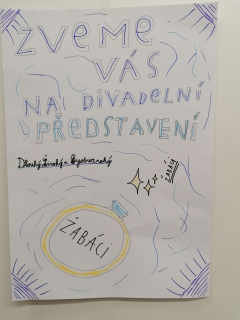 ZVEME
VÁS
NA DIVADELNÍ
PŘEDSTAVENÍ
Dlouhý, Široký a Bystrozraký
ŽABÁCI
ŽABÁCI